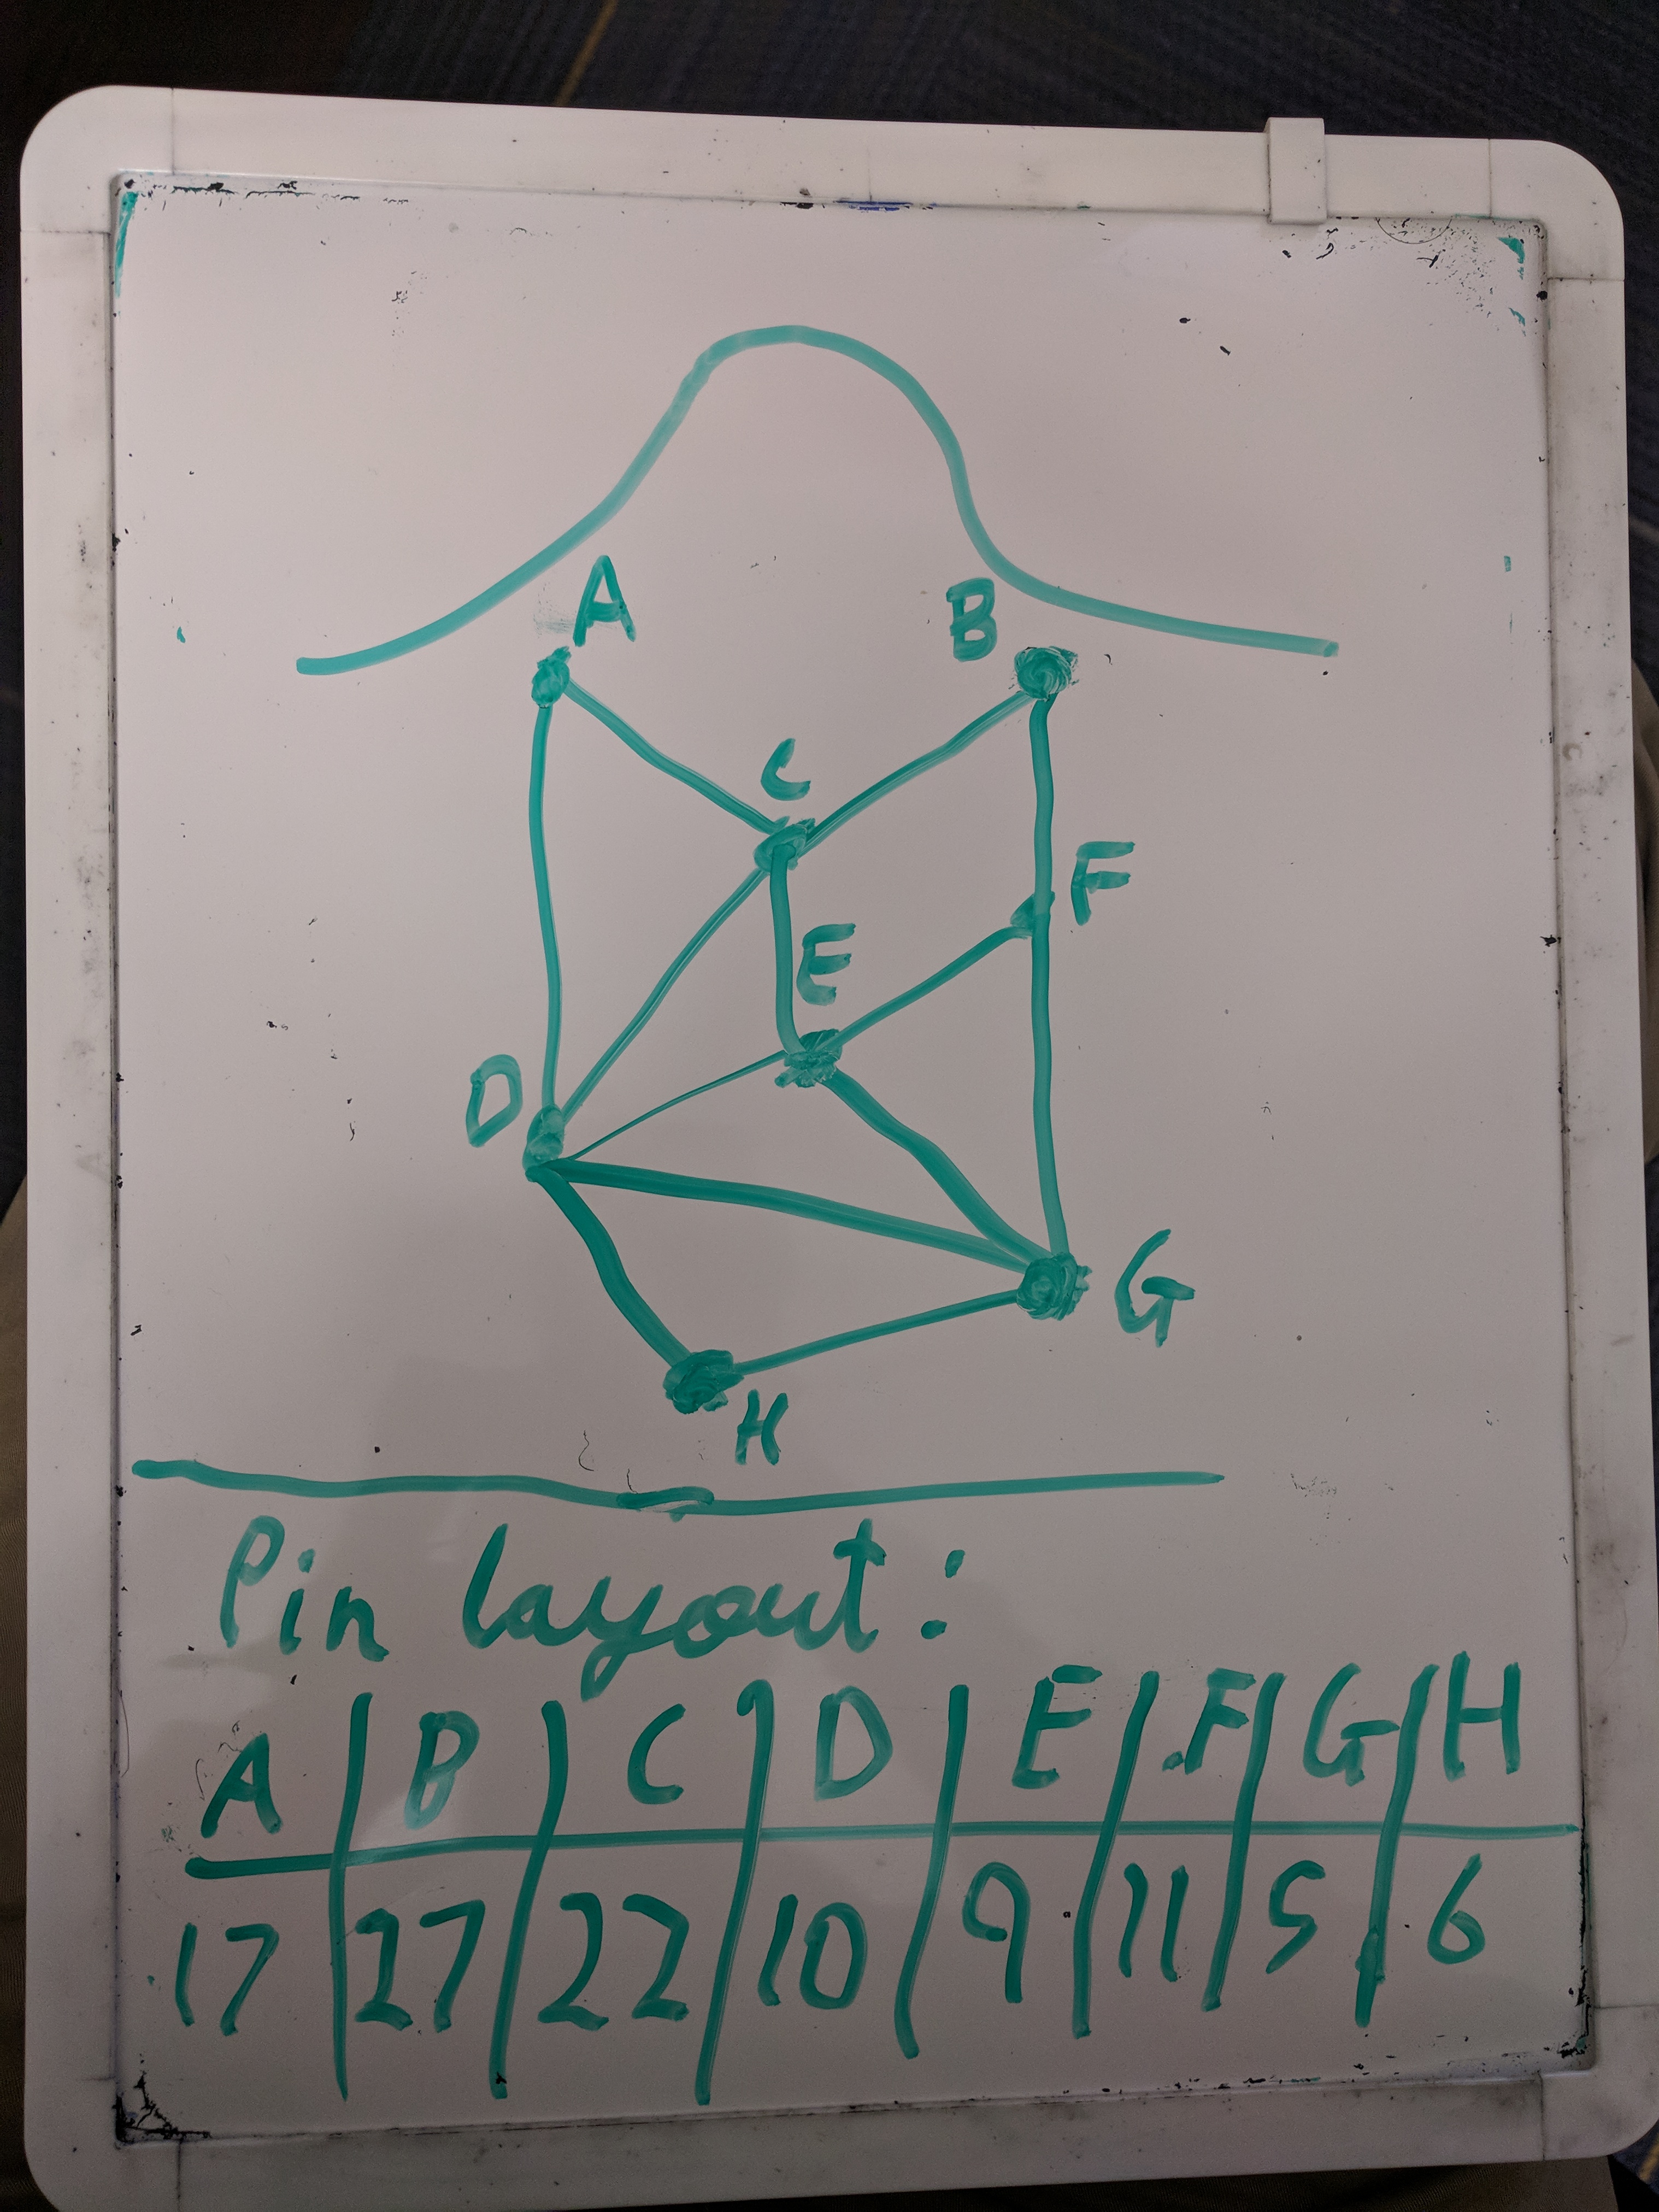 A
B
C
F
E
D
G
H
Pin layout:
A B C D E .F G H
17 27 22 10 9 11 5 6